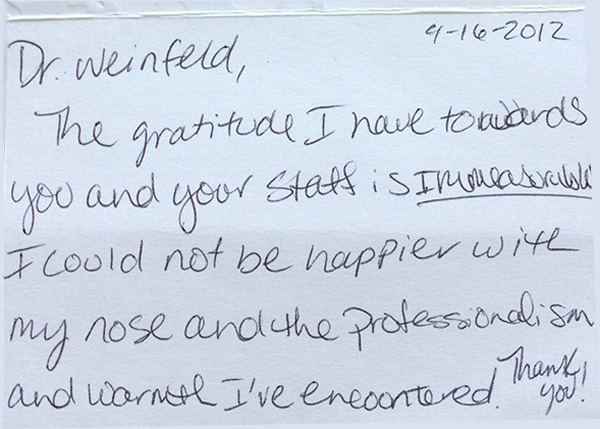 9-16-2012
Dr. Weinfeld,
The gratitude I have towards
you and your staff is Immeasurable
I could not be happier with
my nose and the professionalism
and warmth I've encontered! Thank
you!